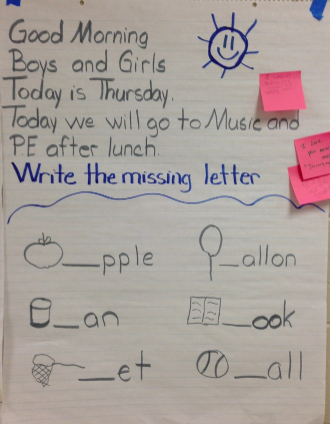 Good Morning
Boys and Girls
Today is Thursday.
Today we will go to Music and
PE after lunch.
Write the missing letter
__pple
_allon
_an
_ook
_et
_all